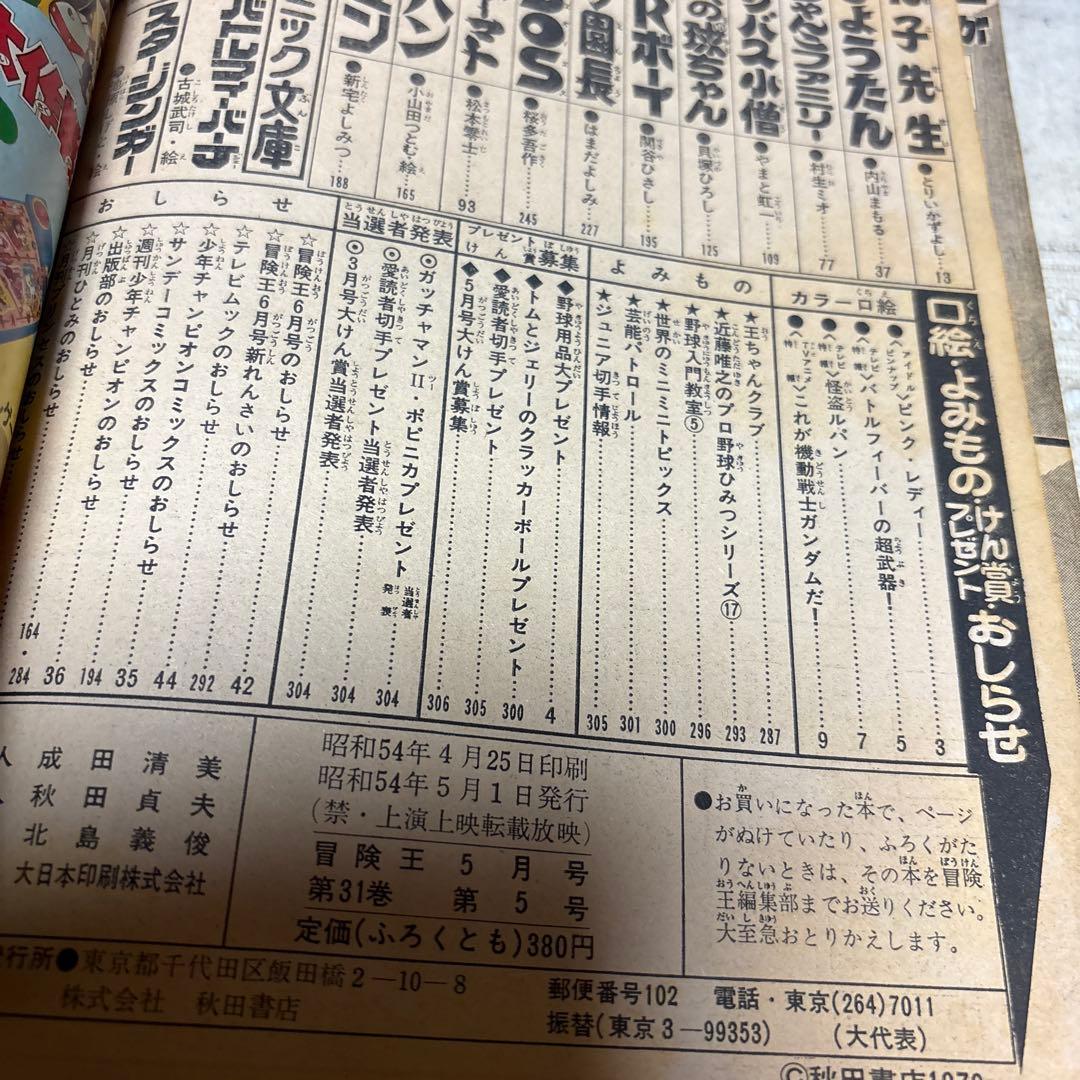 先生
とりいかずよし
13
ようたん
内山まもる
37
ちゃんファミリー
村生ミオ
77
バス小僧
やまと虹一
109
の球ちゃん
貝塚ひろし
125
Rボーイ
関谷ひさし
195
園長
はまだよしみ
227
桜多吾作
245
松本零士
93
小山田つとむ・絵
165
新宅よしみつ
188
ニック文庫
古城武司・絵
スタージンガー
口絵・よみもの・けん賞・プレゼント・おしらせ
カラー口絵
●〈アイドルピンナップ〉ピンク・レディー 3
●〈テレビ特報〉バトルフィーバーの超武器! 5
●〈テレビ特報〉怪盗ルパン 7
●〈TVアニメ特報〉これが機動戦士ガンダムだ! 9
よみもの
★王ちゃんクラブ 287
★近藤唯之のプロ野球ひみつシリーズ⑰ 293
★野球入門教室⑤ 296
★世界のミニミニトピックス 300
★芸能パトロール 301
★ジュニア切手情報 305
プレゼント・けん賞募集
◆野球用品大プレゼント 4
◆トムとジェリーのクラッカーボールプレゼント 300
◆愛読者切手プレゼント 305
◆5月号大けん賞募集 306
当選者発表
◎ガッチャマンII・ポピニカプレゼント当選者発表 304
◎愛読者切手プレゼント当選者発表 304
◎3月号大けん賞当選者発表 304
おしらせ
☆冒険王6月号のおしらせ
☆冒険王6月号新れんさいのおしらせ
☆テレビムックのおしらせ 42
☆少年チャンピオンのおしらせ 292
☆サンデーコミックスのおしらせ 44
☆週刊少年チャンピオンのおしらせ 35
☆出版部のおしらせ 194
☆月刊ひとみのおしらせ 36
のおしらせ 164・284
成田清美
秋田貞夫
北島義俊
大日本印刷株式会社
昭和54年4月25日印刷
昭和54年5月1日発行
(禁・上演上映転載放映)
冒険王 5月号
第31巻 第5号
定価(ふろくとも)380円
●お買いになった本で、ページ
がぬけていたり、ふろくがた
りないときは、その本を冒険
王編集部までお送りください。
大至急おとりかえします。
行所●東京都千代田区飯田橋2-10-8
株式会社 秋田書店
郵便番号102 電話・東京(264)7011
振替(東京3-99353) (大代表)
©秋田書店